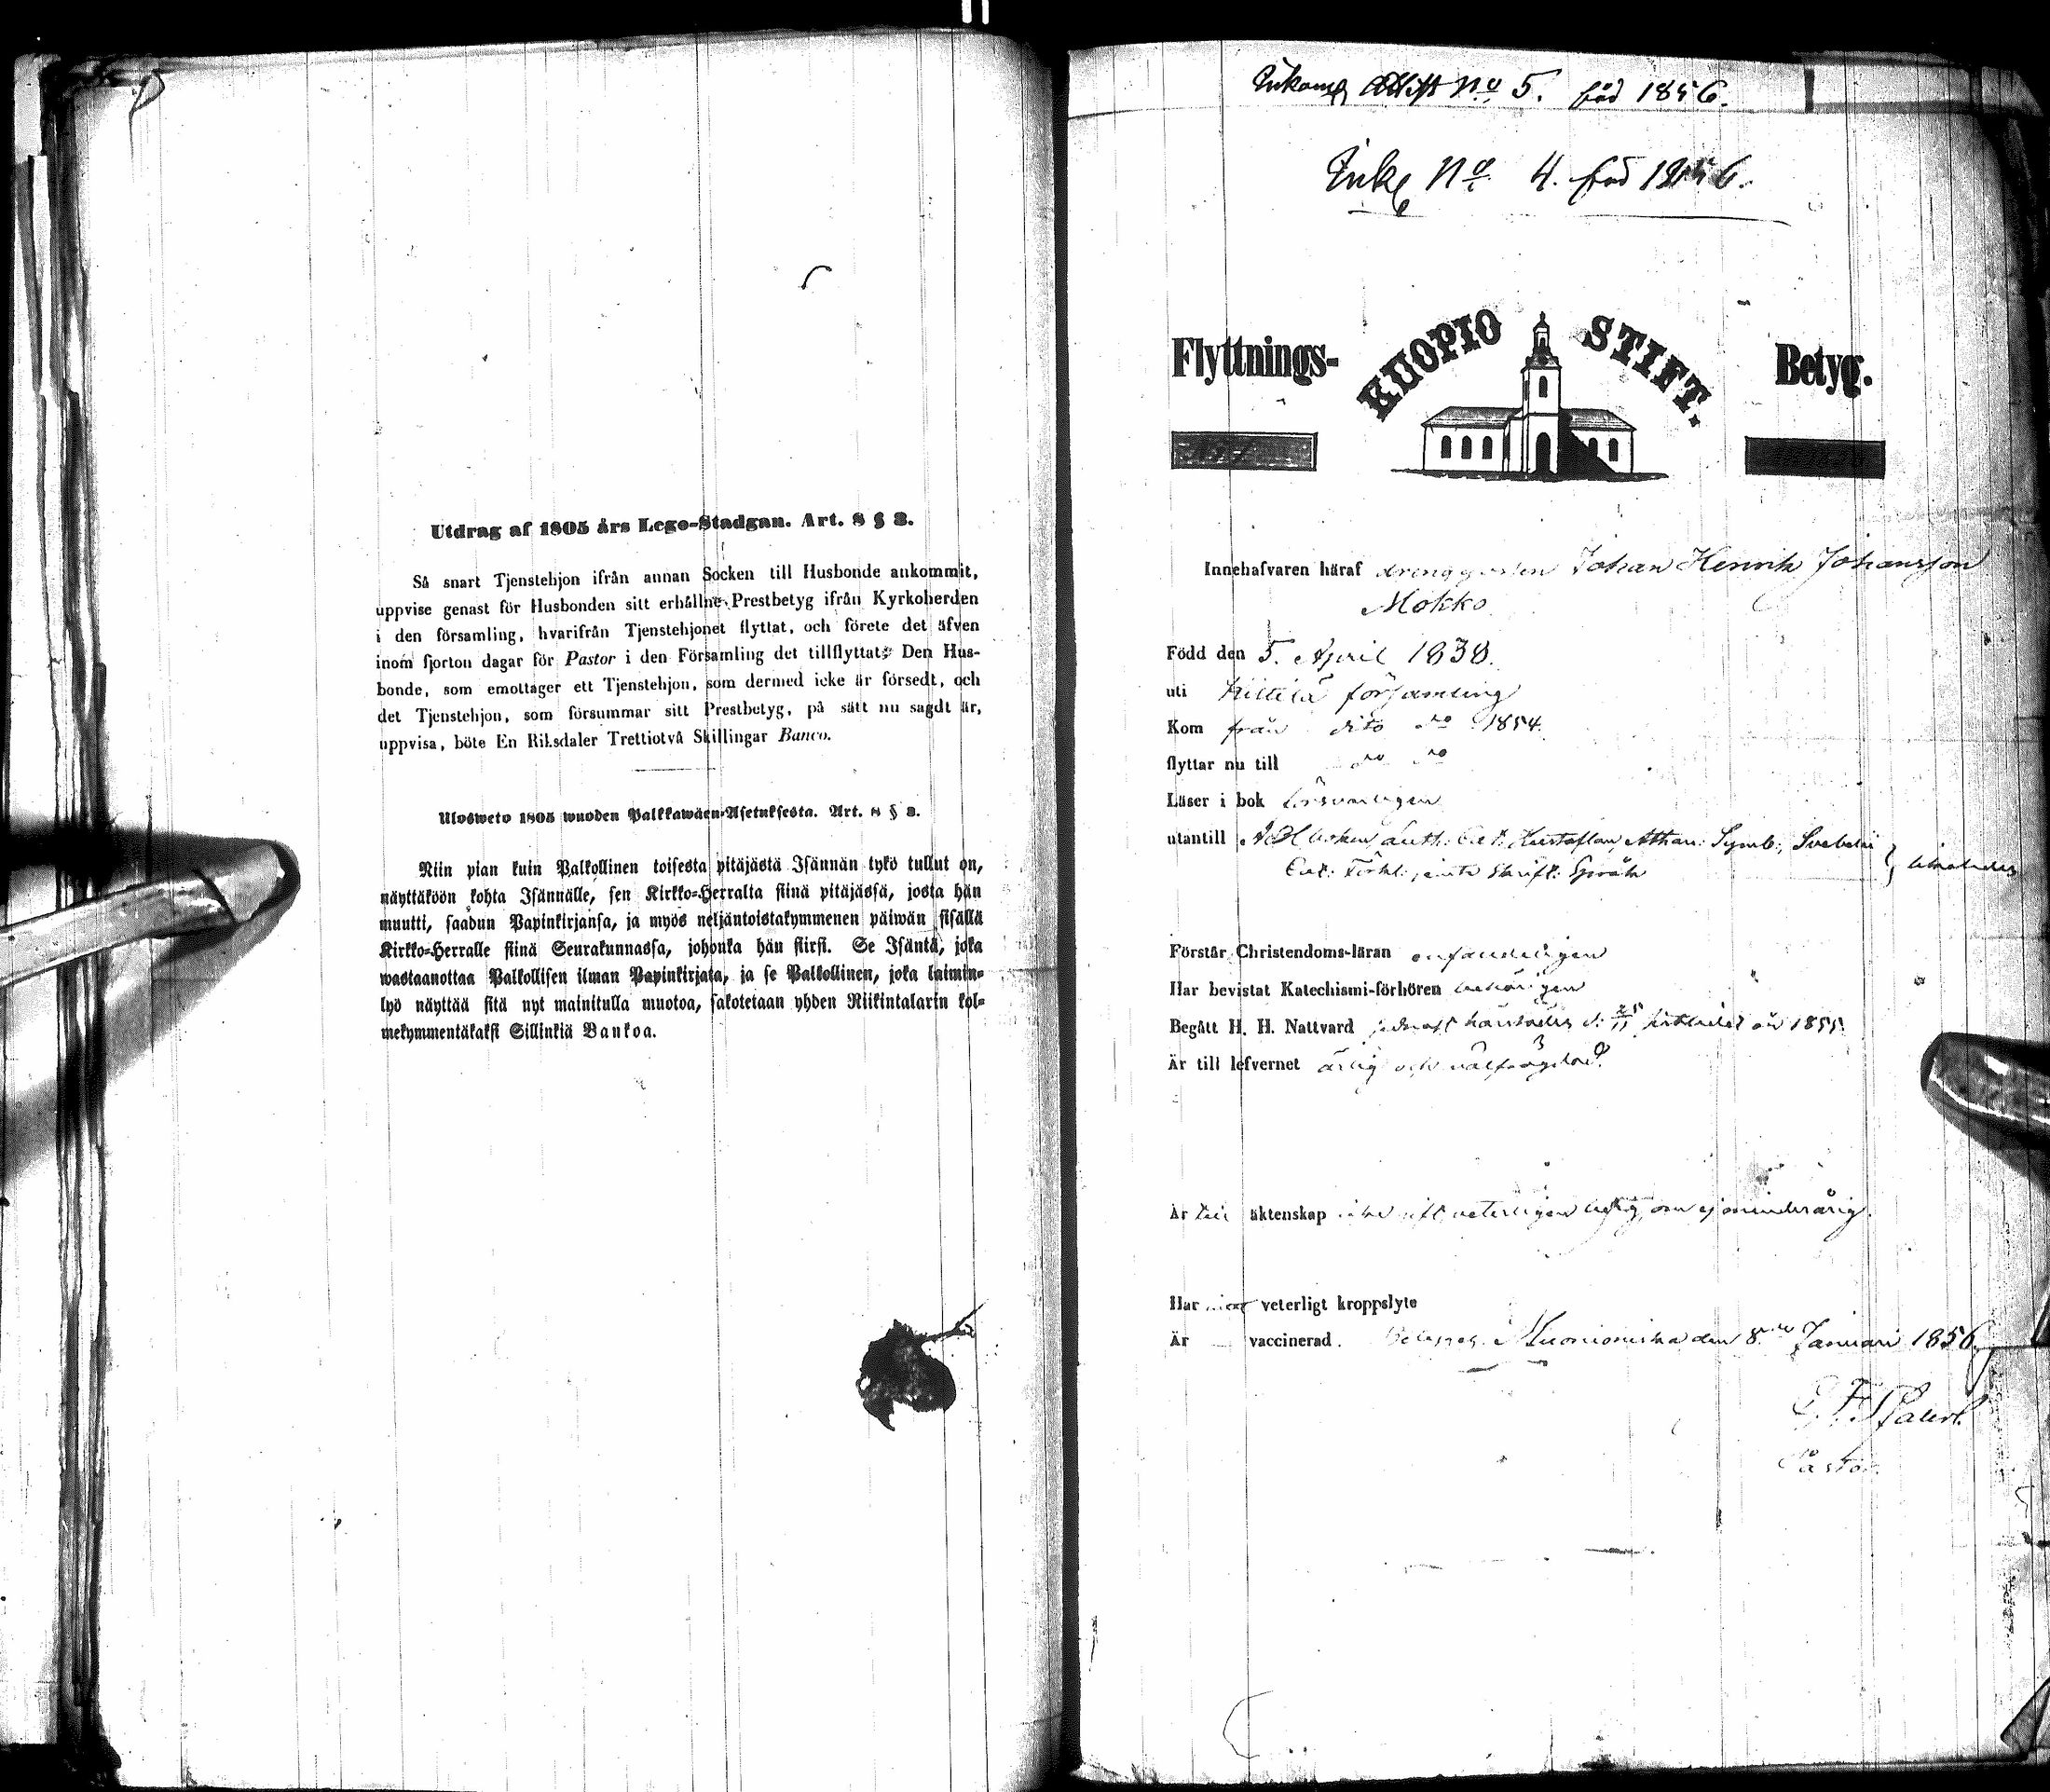 Utdrag af 1805 års Lego-Stadgan. Art. 8 § 3.
Så snart Tjenstehjon ifrån annan Socken till Husbonde ankommit,
uppvise genast för Husbonden sitt erhållne Prestbetyg ifrån Kyrkoherden
i den församling, hvarifrån Tjenstehjonet flyttat, och förete det äfven
inom fjorton dagar för Pastor i den Församling det tillflyttat. Den Hus-
bonde, som emottager ett Tjenstehjon, som dermed icke är försedt, och
det Tjenstehjon, som försummar sitt Prestbetyg, på sätt nu sagdt är,
uppvisa, böte En Riksdaler Trettiotvå Skillingar Banco.
Ulosweto 1805 wuoden Palkkawäen-Asetuksesta. Art. 8 § 3.
Niin pian kuin Palkollinen toisesta pitäjästä Isännän tykö tullut on,
näyttäköön kohta Isännälle, sen Kirkko-Herralta siinä pitäjässä, josta hän
muutti, saadun Papinkirjansa, ja myös neljäntoistakymmenen päiwän sisällä
Kirkko-Herralle siinä Seurakunnassa, johonka hän siirsi. Se Isäntä, joka
wastaanottaa Palkollisen ilman Papinkirjata, ja se Palkollinen, joka laimin-
lyö näyttää sitä nyt mainitulla muotoa, sakotetaan yhden Riikintalarin kol-
mekymmentäkaksi Sillinkiä Bankoa.
No 5. föd 1856.
No 4. föd 1856.
Flyttnings- KUOPIO STIFT. Betyg.
Innehafvaren häraf drenggossen Johan Henrik Johansson
Mokko
Född den 5. April 1838.
uti Kittilä församling
Kom från dito do 1854.
flyttar nu till do do
Läser i bok försvarligen
utantill Luth: Cat: Hustaflan, Athan: Symb:, Svebelii
Cat: Förkl: jemte Skrift: Språk
Förstår Christendoms-läran
Har bevistat Katechismi-förhören behörigen
Begått H. H. Nattvard år 1855
Är till lefvernet ärlig och välfrägdad
Är till äktenskap veterligen ledig, om ej minderårig.
Har veterligt kroppslyte
Är vaccinerad. Muonioniska den 8de Januari 1856.
Pastor.